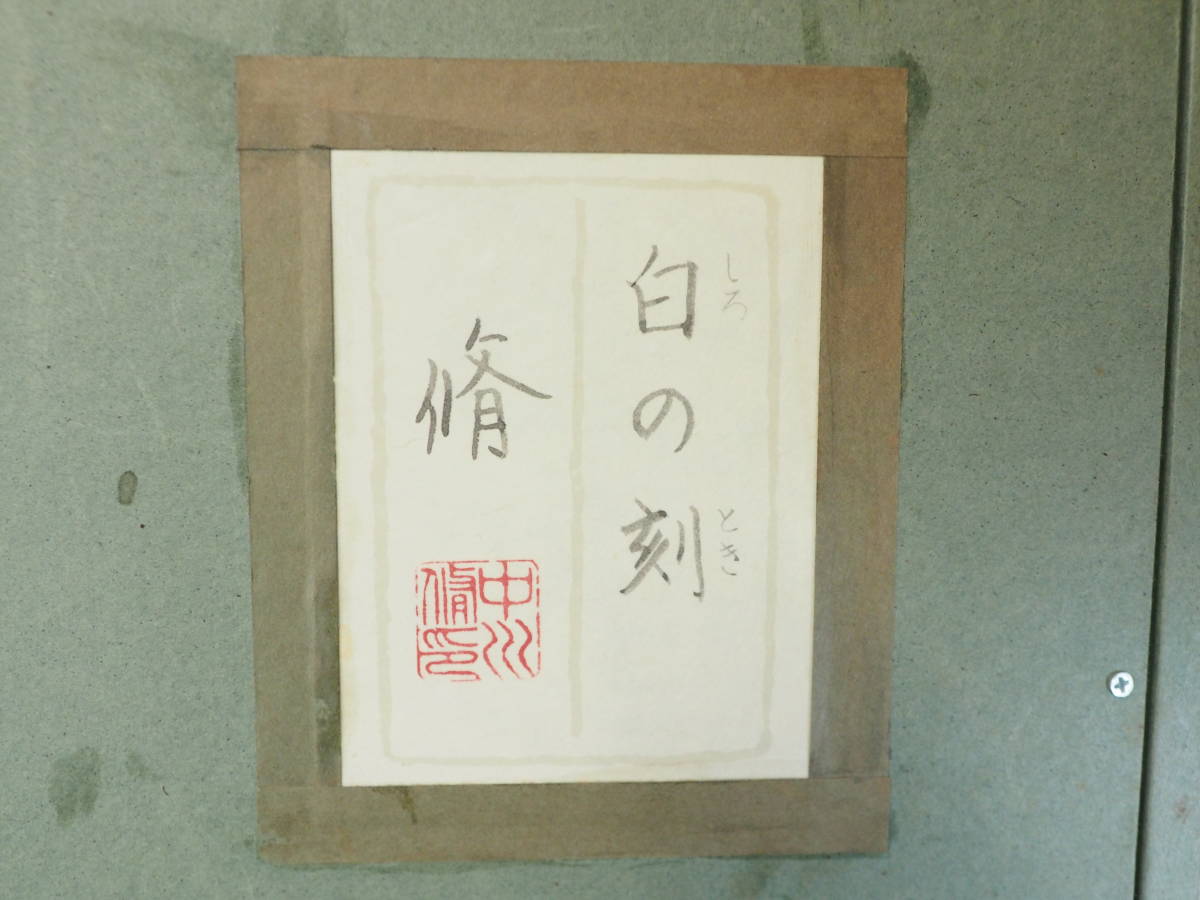 白の刻
しろ
とき
脩
中川
脩印